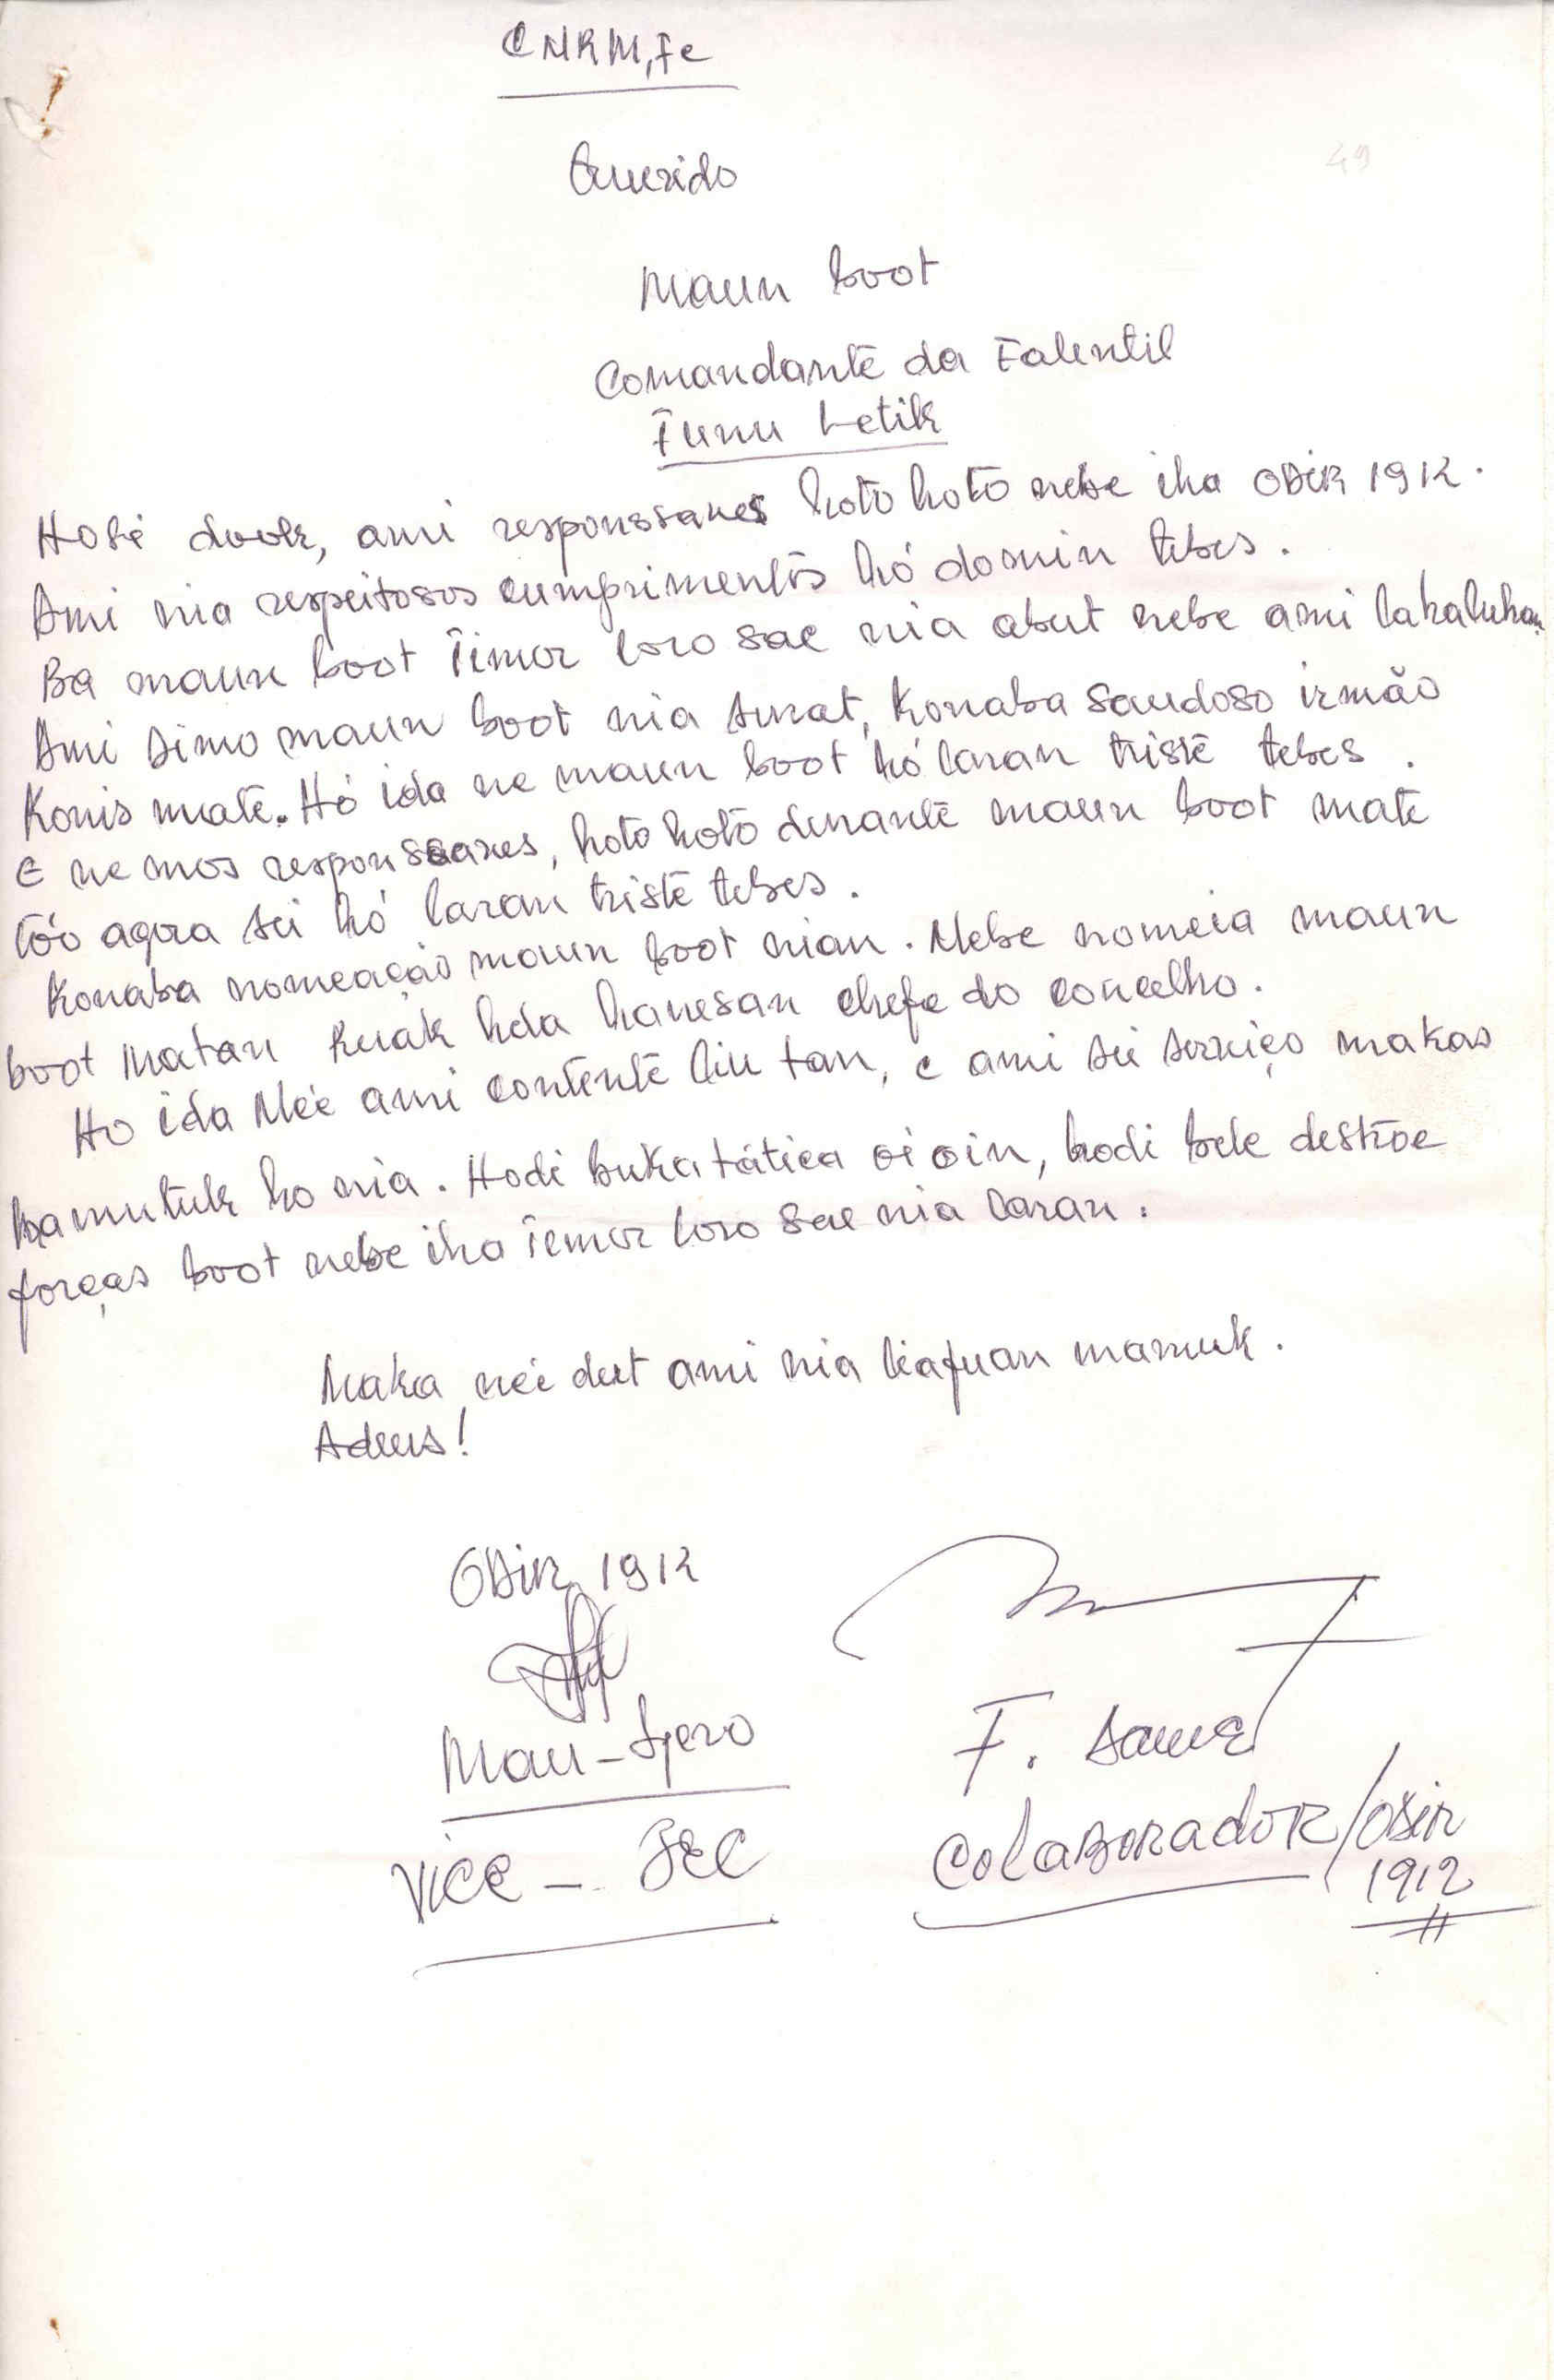 CNRM, Fe
49
Querido
Maun boot
Comandante da Falentil
Funu Letik
Hosi dook, ami responssaves hoto hoto nebe iha OSIR 1912.
Ami nia respeitosos cumprimentos hó domin tebes.
Ba maun boot Timor loro sae nia abut nebe ami lakaluhan
Ami simo maun boot nia surat, konaba saudoso irmão
Konis mate. Hó ida ne maun boot hó laran triste tebes.
E ne mos responssaves, hoto hoto durante maun boot mate
tó'o agora sei hó laran triste tebes.
Konaba nomeação maun boot nian. Nebe nomeia maun
boot Matan Ruak hda hanesan chefe do concelho.
Ho ida Ne'e ami contente liu tan, e ami sei serviço makas
hamutuk ho nia. Hodi buka tática oi oin, hodi bele destroe
forças boot nebe iha Timor loro sae nia laran.
Maka nei deit ami nia liafuan mamuk.
Adeus!
OSIR 1912
Mau-Sjero
F. Same
Vice - SEC
Colaborador/OSIR
1912